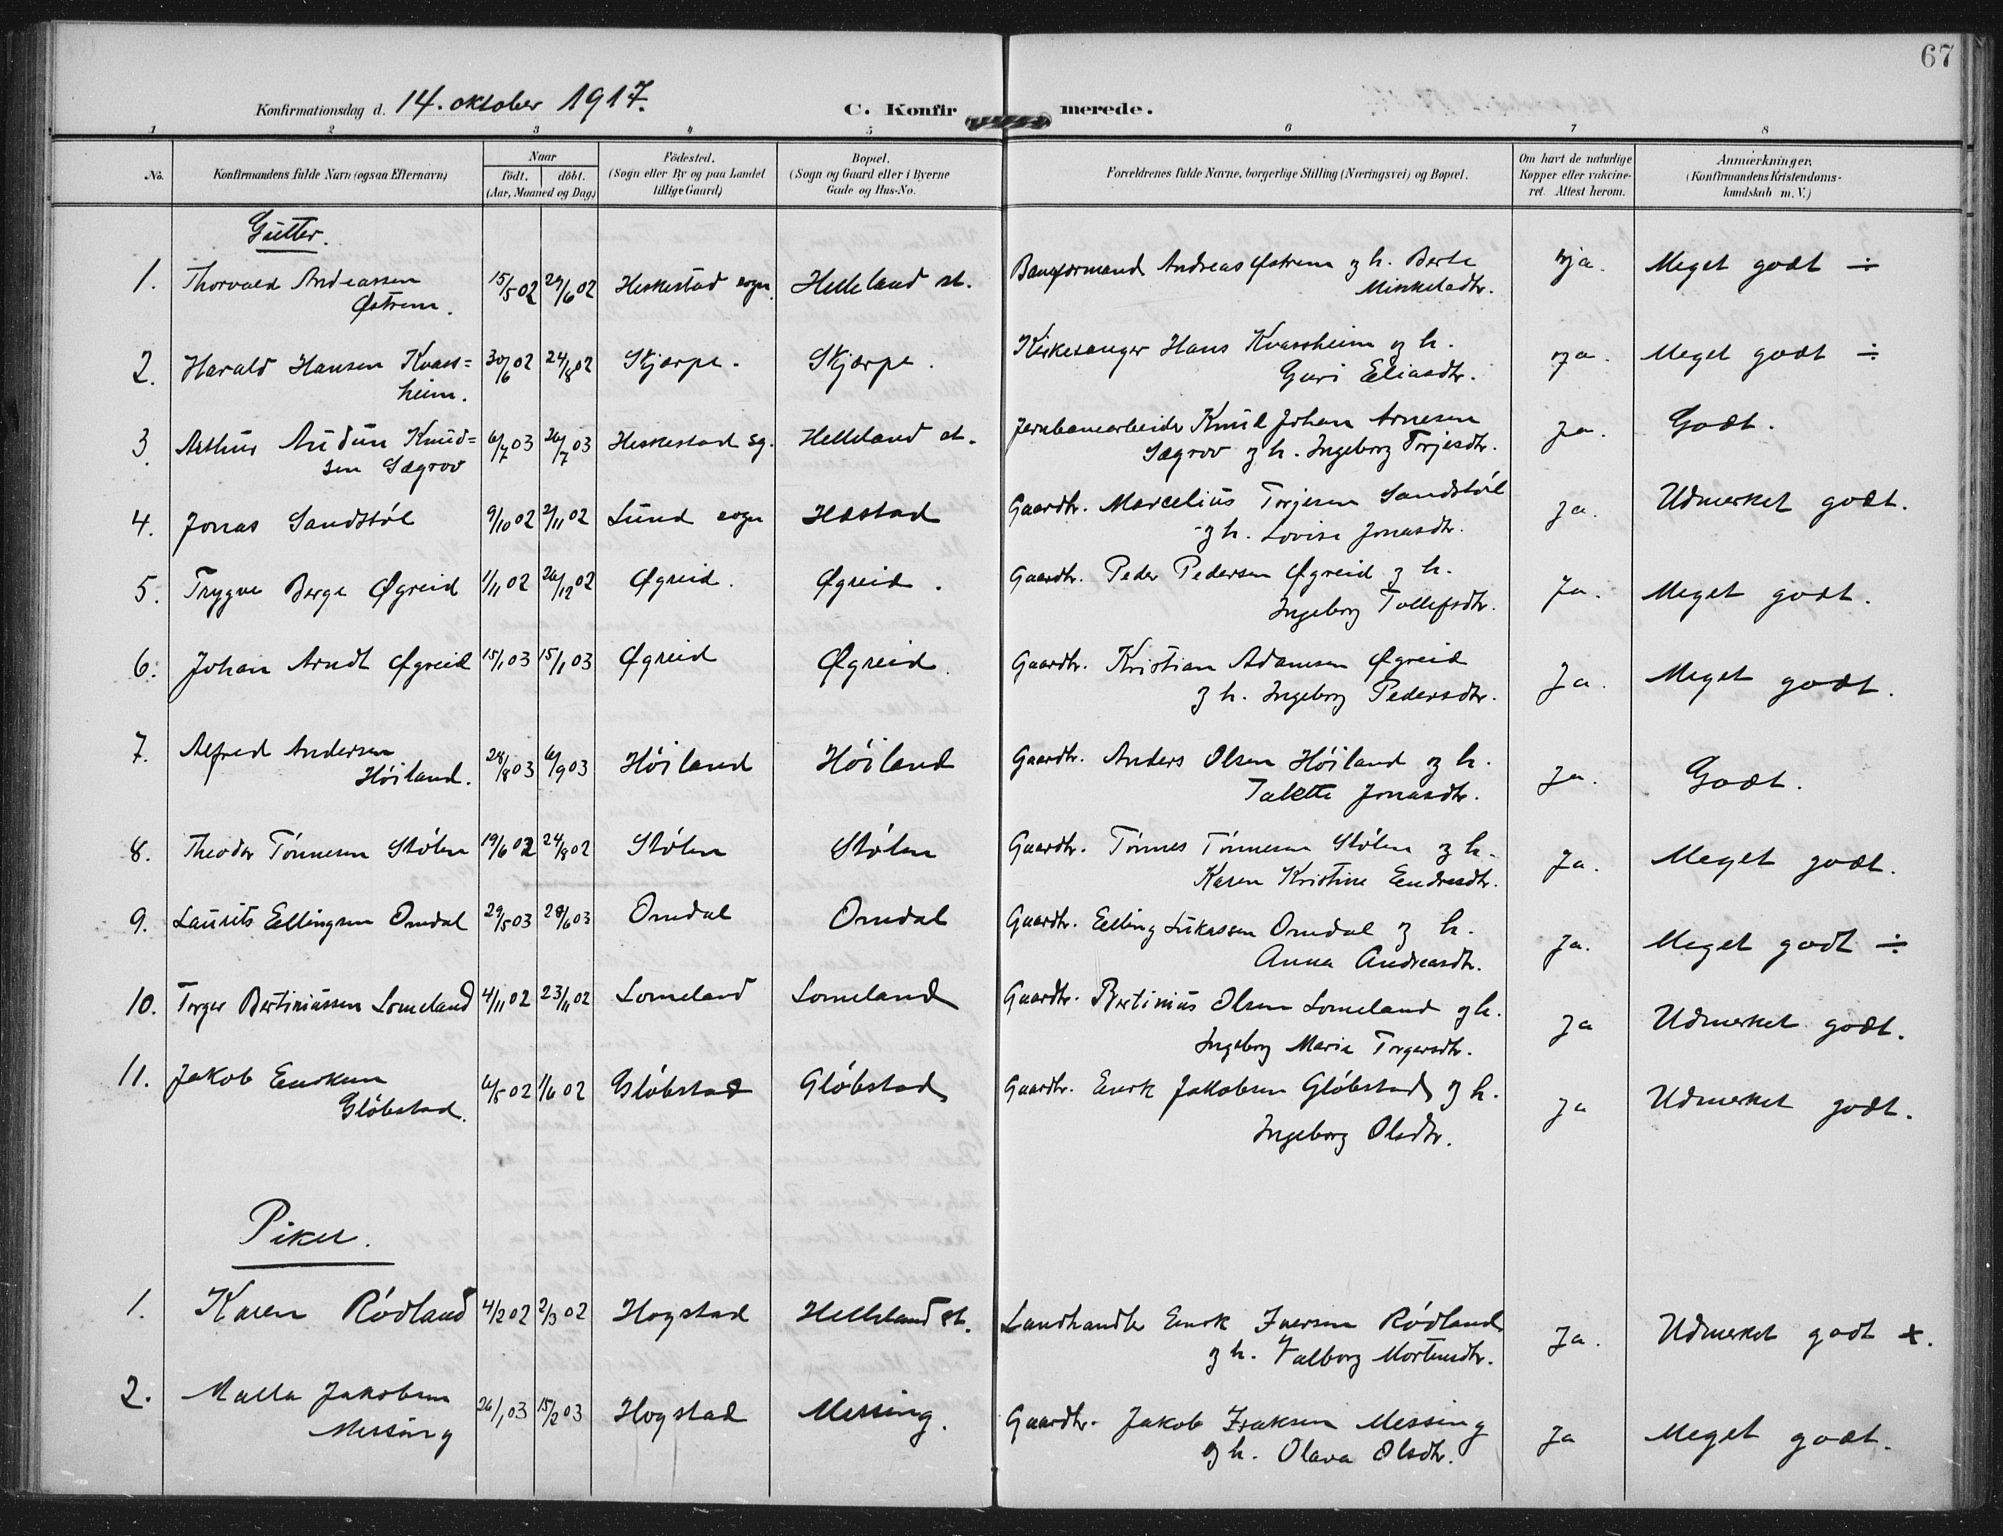 67
Konfirmationsdag d. 14. oktober 1917. C. Konfirmerede.
1 2 3 4 5 6 7 8
No. Konfirmandens fulde Navn (ogsaa Efternavn) Naar födt. döbt. (Aar, Maaned og Dag) Födested. (Sogn eller By og paa Landet tillige Gaard) Bopæl. (Sogn og Gaard eller i Byerne Gade og Hus-No. Forældrenes fulde Navne, borgerlige Stilling (Næringsvei) og Bopæl. Om havt de naturlige Kopper eller vakcineret. Attest herom. Anmærkninger. (Konfirmandens Kristendomskundskab m. V.)
Gutter.
1. Thorvald Andreassen 15/5 02 29/6 02 Heskestad sogn. Helleland st. Baneformand Andreas Østrem og h. Berte ja. Meget godt ÷
Østrem. Mikkelsdtr.
2. Harald Hansen Kvass= 30/6 02 24/8 02 Skjærpe. Skjærpe. Kirkesanger Hans Kvassheim og h. ja. Meget godt ÷
heim. Guri Eliasdtr.
3. Arthur Audun Knud= 6/7 03 26/7 03 Heskestad sg. Helleland st. Jernbanearbeider Knud Johan Arnesen ja. Godt.
sen Sægrov og h. Ingeborg Torjesdtr.
4. Jonas Sandstøl 9/10 02 2/11 02 Lund sogn Hæstad Gaardbr. Marcelius Torjesen Sandstøl ja. Udmerket godt.
og h. Lovise Jonasdtr.
5. Trygve Berge Øgreid 1/11 02 26/12 02 Øgreid. Øgreid. Gaardbr. Peder Pedersen Øgreid og h. Ja. Meget godt.
Ingeborg Tollefsdtr.
6. Johan Arndt Øgreid 15/1 03 15/1 03 Øgreid Øgreid. Gaardbr. Kristian Adamsen Øgreid Ja. Meget godt.
og h. Ingeborg Pedersdtr.
7. Alfred Andersen 28/8 03 6/9 03 Höiland Höiland Gaardbr. Anders Olsen Höiland og h. Ja. Godt.
Höiland. Talette Jonasdtr.
8. Theodor Tönnesen Stölen 19/6 02 24/8 02 Stölen Stölen Gaardbr. Tönnes Tönnesen Stölen og h. Ja. Meget godt.
Karen Kristine Endresdtr.
9. Laurits Eellingsen Omdal 29/5 03 28/6 03 Omdal Omdal Gaardbr. Eelling Lukassen Omdal og h. Ja. Meget godt ÷
Anna Andreasdtr.
10. Torger Bertiniussen Lomeland 4/11 02 23/11 02 Lomeland Lomeland Gaardbr. Bertinius Olsen Lomeland og h. Ja Udmerket godt.
Ingeborg Marie Torgersdtr.
11. Jakob Eeriksen 6/5 02 1/6 02 Glöbstad Glöbstad Gaardbr. Eerik Jakobsen Glöbstad og h. Ja Udmerket godt.
Glöbstad. Ingeborg Olsdtr.
Piker.
1. Karen Rödland 4/2 02 2/3 02 Hogstad Helleland st. Landhandler Eerik Iversen Rödland Ja. Udmerket godt x.
og h. Valborg Mortensdtr.
2. Malla Jakobsen 26/1 03 15/2 03 Hogstad Messing. Gaardbr. Jakob Isaksen Messing Ja Meget godt.
Messing og h. Olava Olsdtr.